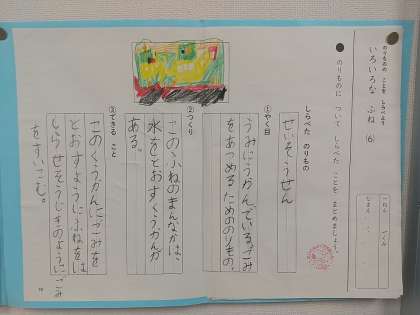 のりものの ことを しらべよう
いろいろな ふね (6)
● のりものに ついて しらべた ことを まとめましょう。
しらべた のりもの
せいそうせん
①やく目
うみにうかんでいるごみ
をあつめるためののりもの。
②つくり
このふねのまんなかは、
水をとおすくうかんが
ある。
③できる こと
このくうかんに、ごみを
とおすようにふねをは
しらせそうじきのようにごみ
をすいこむ。